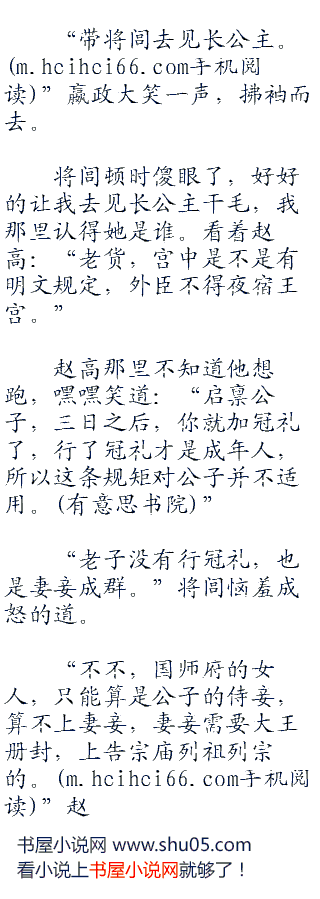 “带将闾去见长公主。
(m.hcihci66.com手机阅
读)”嬴政大笑一声，拂袖而
去。
将闾顿时傻眼了，好好
的让我去见长公主干毛，我
那里认得她是谁。看着赵
高：“老货，宫中是不是有
明文规定，外臣不得夜宿王
宫。”
赵高那里不知道他想
跑，嘿嘿笑道：“启禀公
子，三日之后，你就加冠礼
了，行了冠礼才是成年人，
所以这条规矩对公子并不适
用。(有意思书院)”
“老子没有行冠礼，也
是妻妾成群。”将闾恼羞成
怒的道。
“不不，国师府的女
人，只能算是公子的侍妾，
算不上妻妾，妻妾需要大王
册封，上告宗庙列祖列宗
的。(m.hcihci66.com手机阅
读)”赵
书屋小说网 www.shu05.com
看小说上书屋小说网就够了！